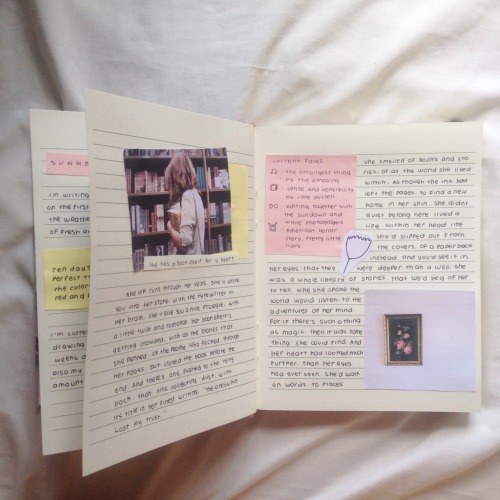 SUMME
I'm writing
on the first
the weathe
of fresh ai
ten days
perfect t
the color
red and
i'm curre
drawing
weeks a
also my
amount
She has a book shelf for a heart
And ink runs through her veins. She'll write
you into her story, with the typewriter in
her brain. She'll give you a nice prologue, with
a little wild and romance. Her bookshelf's
getting crowded, with all the stories that
she penned. Of the people who flicked through
her pages, but closed the book before the
end. And there's one pushed to the very
back, that sits collecting dust. With
its title in her finest writing "The ones who
lost my trust."
current faves
the strangest thing
by the amazing
sense and sensibility
by jane austen
editing together with
the sundown and
white photographics
American horror
story, pretty little
liars
she smelled of beans and sto
ries of all the world she lived
within. As though the ink had
left the pages, to find a new
home in her skin. She didn't
quiet belong here, lived a
life within her head, like
she'd slipped out from
the covers, of a paperback
instead. And you'd see it in
her eyes, that they were deeper than a well. She
was a whole library of stories, that we'd beg of her
to tell. Why she alone the
world would listen, to the
adventures of her mind.
For if there's such a thing
as magic, then it was some
thing she could find. And
her heart had looked much
further, than her eyes
had ever seen. She'd walk
on words to places